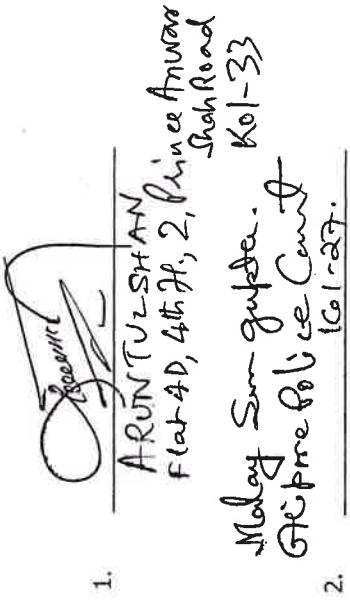 1.
ARUN TULSHAN
Flat 4D, 4th Fl, 2, Prince Anwar
Shah Road
Kol-33
Malay Sen gupta.
Alipore Police Court
Kol-27.
2.